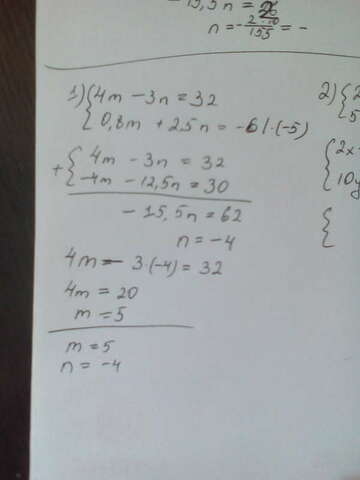 - 15,5n = 2
n = - 2·10/155 = -
1) { 4m - 3n = 32
0,8m + 2,5n = -6 | ·(-5)
+ { 4m - 3n = 32
-4m - 12,5n = 30
- 15,5n = 62
n = -4
4m - 3·(-4) = 32
4m = 20
m = 5
m = 5
n = -4
2) { 2
5
{ 2x
10y
{